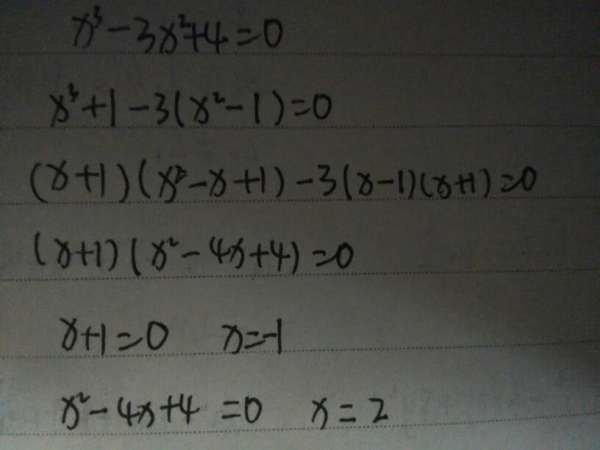 x³-3x²+4=0
x³+1-3(x²-1)=0
(x+1)(x²-x+1)-3(x-1)(x+1)=0
(x+1)(x²-4x+4)=0
x+1=0 x=-1
x²-4x+4=0 x=2